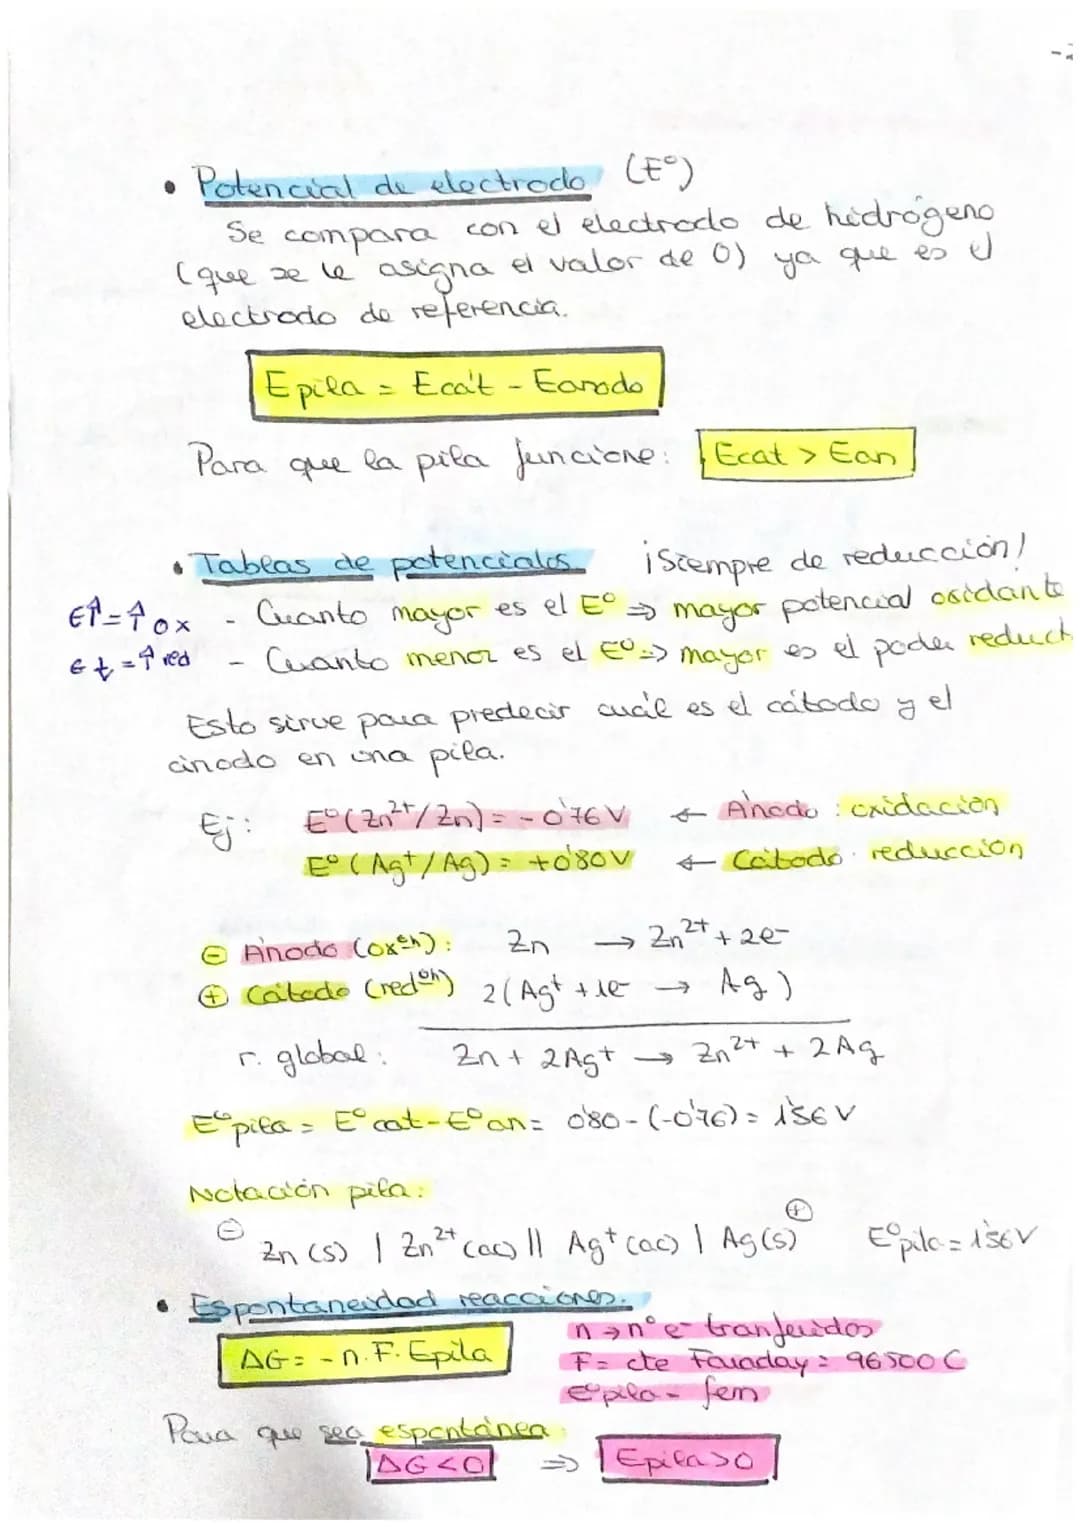 • Potencial de electrodo (E°)
Se compara con el electrodo de hidrógeno
(que se le asigna el valor de 0) ya que es el
electrodo de referencia.
Epila = Ecát - Eánodo
Para que la pila funcione: Ecat > Ean
• Tablas de potenciales ¡Siempre de reducción!
E↑=↑ox - Cuanto mayor es el E° ⇒ mayor potencial oxidante
E↓=↑red - Cuanto menor es el E° ⇒ mayor es el poder reduct
Esto sirve para predecir cuál es el cátodo y el
ánodo en una pila.
Ej: E°(Zn²⁺/Zn) = -0'76 V ← Ánodo: oxidación
E°(Ag⁺/Ag) = +0'80 V ← Cátodo: reducción
⊖ Ánodo (oxᵒⁿ): Zn → Zn²⁺ + 2e⁻
⊕ Cátodo (redᵒⁿ) 2(Ag⁺ + 1e⁻ → Ag)
r. global: Zn + 2Ag⁺ → Zn²⁺ + 2Ag
E°pila = E°cat - E°an = 0'80 - (-0'76) = 1'56 V
Notación pila:
⊖ Zn (s) | Zn²⁺ (ac) || Ag⁺ (ac) | Ag (s) ⊕ E°pila = 1'56 V
• Espontaneidad reacciones.
n → n° e⁻ tranferidos
ΔG = - n. F. Epila
F = cte Faraday = 96500 C
E°pila = fem
Para que sea espontánea:
ΔG<0 ⇒ Epila>0